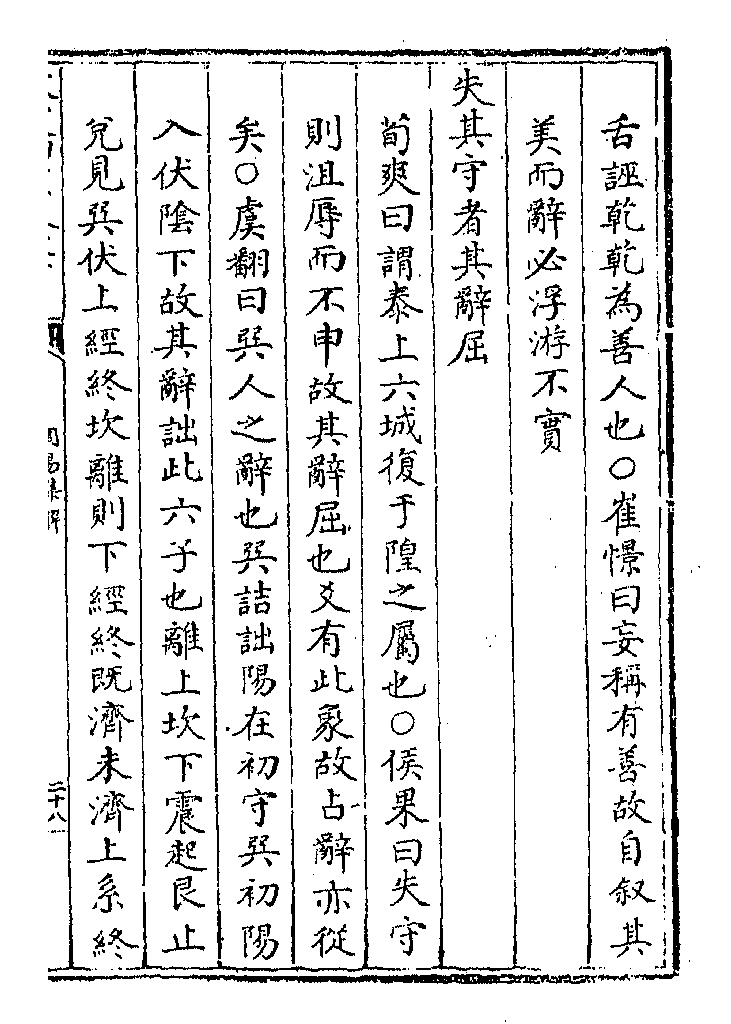 舌誣乾乾為善人也○崔憬曰妄稱有善故自叙其
美而辭必浮游不實
失其守者其辭屈
荀爽曰謂泰上六城復于隍之屬也○侯果曰失守
則沮辱而不申故其辭屈也爻有此象故占辭亦從
矣○虞翻曰巽人之辭也巽詰詘陽在初守巽初陽
入伏陰下故其辭詘此六子也離上坎下震起艮止
兌見巽伏上經終坎離則下經終既濟未濟上系終
周易集解
二十八